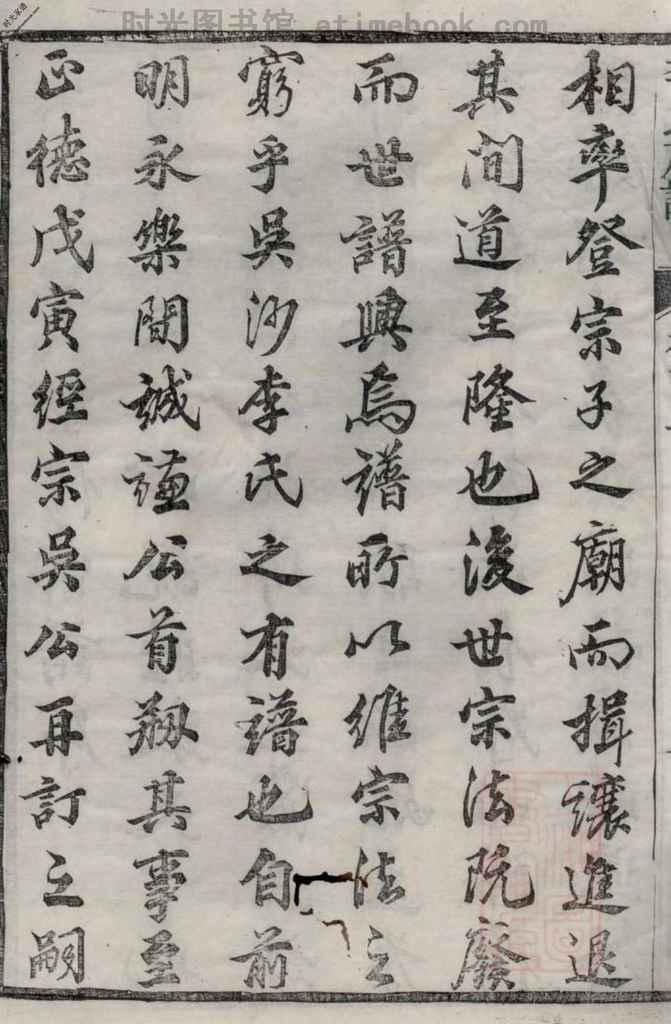 时光图书馆 atimebook.com
相率登宗子之廟而揖讓進退
其间道至隆也後世宗法既廢
而世譜興焉譜所以維宗法之
窮乎吳沙李氏之有譜也自前
明永樂間誠謙公首剏其事至
正德戊寅經宗吳公再訂之嗣